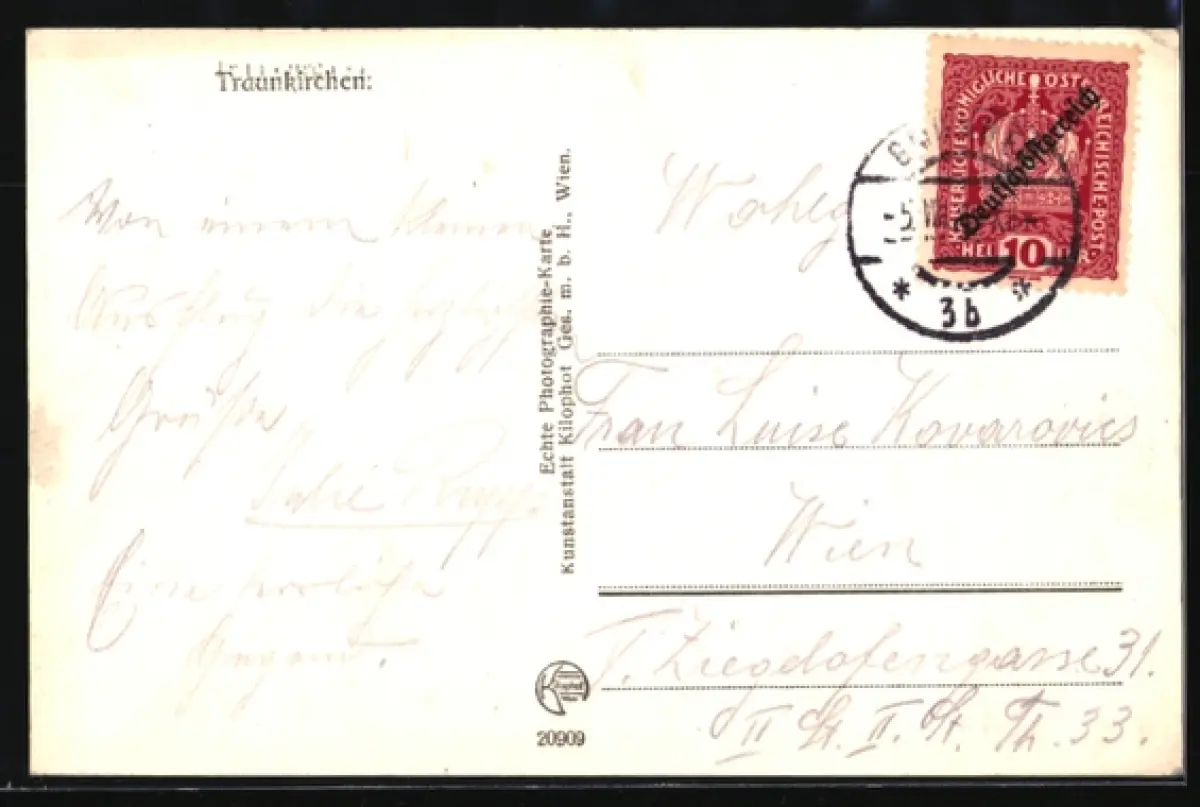 Traunkirchen:
Von einem kleinen
Ausflug die herzlichsten
Grüße
Eine herrliche
Gegend.
Echte Photographie-Karte
Kunstanstalt Kilophot Ges. m. b. H., Wien.
20909
KAISERLICHE KÖNIGLICHE ÖSTERREICHISCHE POST
Deutschösterreich
HELLER
10
3b
Wohlg
Frau Luise Kovarovics
Wien
Ziegelofengasse 31.
II St. II. St. Th. 33.